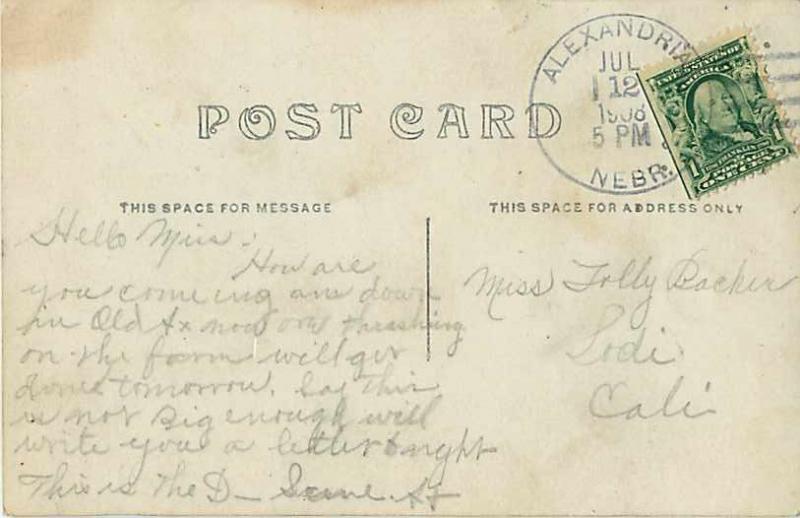 ALEXANDRIA
JUL
12
1908
5 PM
NEBR.
UNITED STATES OF
AMERICA
FRANKLIN
1 POSTAGE 1
ONE CENT
POST CARD
THIS SPACE FOR MESSAGE
THIS SPACE FOR ADDRESS ONLY
Hello Miss:
How are
you comeing ans down
in Old now our thrashing
on the farm will get
done tomorrow. Say this
is not big enough will
write you a letter tonight
This is the D—
Miss Tolly Backer
Lodi
Cali